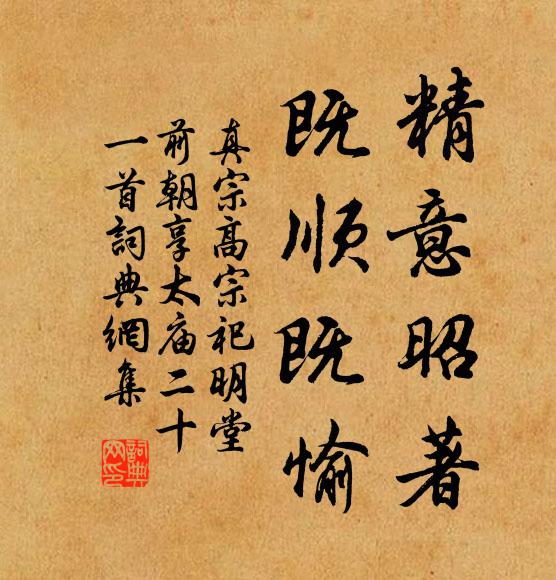 精意昭著
既顺既愉
真宗高宗祀明堂
前朝享太庙二十
一首詞典網集
詞典
网印